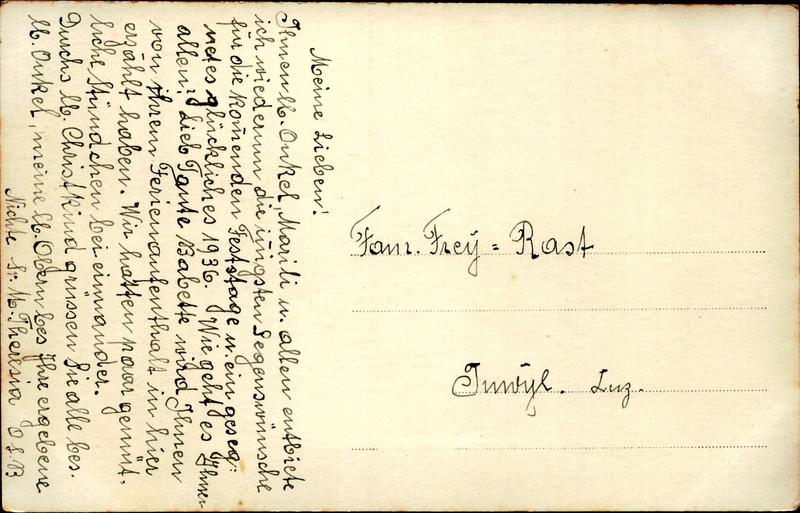 Meine Lieben!
Ihnen lb. Onkel, Marili u. allen entbiete
ich wiederum die in̄igsten Segenswünsche
für die kom̄enden Festtage u. ein geseg:
netes glückliches 1936. Wie geht es Ihnen
allen? Lieb Tante Babette wird Ihnen
von ihrem Ferienaufenthalt in hier
erzählt haben. Wir hatten paar gemüt.
liche Stündchen bei einander.
Durchs lb. Christkind grüssen Sie alle bes.
lb. Onkel, meine lb. Obern bes Ihre ergebene
Nichte Sr. M. Theresia O S. B
Fam. Frey = Rast
Inwyl. Luz.